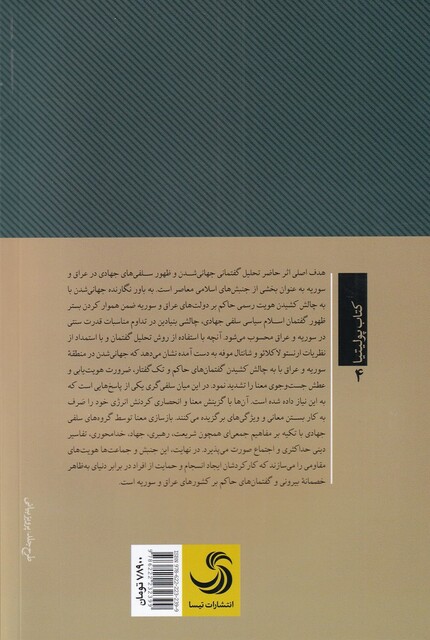 هدف اصلی اثر حاضر تحلیل گفتمانی جهانی‌شدن و ظهور سلفی‌های جهادی در عراق و
سوریه به عنوان بخشی از جنبش‌های اسلامی معاصر است. به باور نگارنده جهانی‌شدن با
به چالش کشیدن هویت رسمی حاکم بر دولت‌های عراق و سوریه ضمن هموار کردن بستر
ظهور گفتمان اسلام سیاسی سلفی جهادی، چالشی بنیادین در تداوم مناسبات قدرت سنتی
در سوریه و عراق محسوب می‌شود. آنچه با استفاده از روش تحلیل گفتمان و با استمداد از
نظریات ارنستو لاکلائو و شانتال موفه به دست آمده نشان می‌دهد که جهانی‌شدن در منطقهٔ
سوریه و عراق با به چالش کشیدن گفتمان‌های حاکم و تک‌گفتار، ضرورت هویت‌یابی و
عطش جست‌وجوی معنا را تشدید نمود. در این میان سلفی‌گری یکی از پاسخ‌هایی است که
به این نیاز داده شده است. آن‌ها با گزینش معنا و انحصاری کردنش انرژی خود را صَرف
به کار بستن معانی و ویژگی‌های برگزیده می‌کنند. بازسازی معنا توسط گروه‌های سلفی
جهادی با تکیه بر مفاهیم جمعی‌ای همچون شریعت، رهبری، جهاد، خدامحوری، تفاسیر
دینی حداکثری و اجتماع صورت می‌پذیرد. در نهایت، این جنبش و جماعت‌ها هویت‌های
مقاومی را می‌سازند که کارکردشان ایجاد انسجام و حمایت از افراد در برابر دنیای به‌ظاهر
خصمانهٔ بیرونی و گفتمان‌های حاکم بر کشورهای عراق و سوریه است.
کتاب پولیتیا
طرح جلد: پرویز بیانی
ISBN: 978-622-223-239-9
9786222232399
۷۸۹۰۰ تومان
انتشارات تیسا